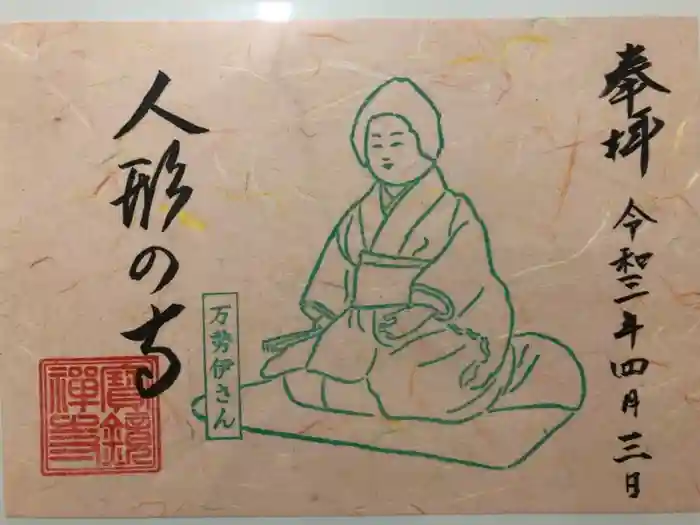 奉拝
令和三年四月三日
人形の寺
万勢伊さん
寶鏡
禅寺